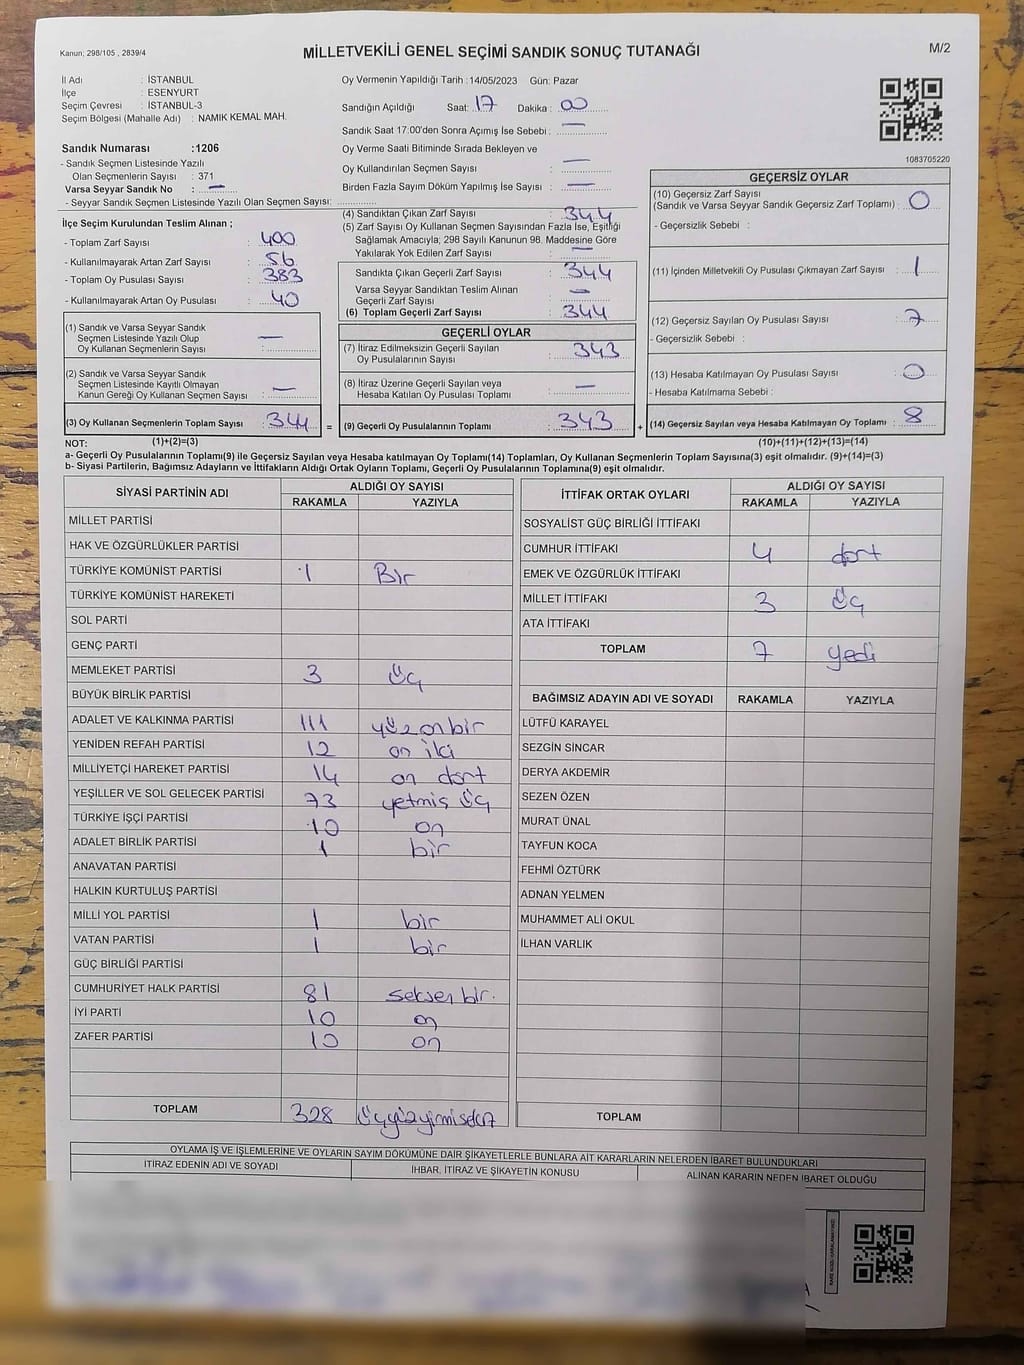 Kanun; 298/105 , 2839/4
MİLLETVEKİLİ GENEL SEÇİMİ SANDIK SONUÇ TUTANAĞI
M/2
İl Adı : İSTANBUL
İlçe : ESENYURT
Seçim Çevresi : İSTANBUL-3
Seçim Bölgesi (Mahalle Adı) : NAMIK KEMAL MAH.
Sandık Numarası :1206
- Sandık Seçmen Listesinde Yazılı
Olan Seçmenlerin Sayısı : 371
Varsa Seyyar Sandık No : —
- Seyyar Sandık Seçmen Listesinde Yazılı Olan Seçmen Sayısı:
Oy Vermenin Yapıldığı Tarih :14/05/2023 Gün: Pazar
Sandığın Açıldığı Saat: 17 Dakika : 00
Sandık Saat 17:00'den Sonra Açımış İse Sebebi : —
Oy Verme Saati Bitiminde Sırada Bekleyen ve
Oy Kullandırılan Seçmen Sayısı : —
Birden Fazla Sayım Döküm Yapılmış İse Sayısı : —
1083705220
İlçe Seçim Kurulundan Teslim Alınan ;
- Toplam Zarf Sayısı : 400
- Kullanılmayarak Artan Zarf Sayısı : 56
- Toplam Oy Pusulası : 383
- Kullanılmayarak Artan Oy Pusulası : 40
(1) Sandık ve Varsa Seyyar Sandık
Seçmen Listesinde Yazılı Olup
Oy Kullanan Seçmenlerin Sayısı : —
(2) Sandık ve Varsa Seyyar Sandık
Seçmen Listesinde Kayıtlı Olmayan
Kanun Gereği Oy Kullanan Seçmen Sayısı : —
(3) Oy Kullanan Seçmenlerin Toplam Sayısı : 344
(4) Sandıktan Çıkan Zarf Sayısı : 344
(5) Zarf Sayısı Oy Kullanan Seçmen Sayısından Fazla İse, Eşitliği
Sağlamak Amacıyla; 298 Sayılı Kanunun 98. Maddesine Göre
Yakılarak Yok Edilen Zarf Sayısı : —
Sandıkta Çıkan Geçerli Zarf Sayısı : 344
Varsa Seyyar Sandıktan Teslim Alınan
Geçerli Zarf Sayısı : —
(6) Toplam Geçerli Zarf Sayısı : 344
GEÇERLİ OYLAR
(7) İtiraz Edilmeksizin Geçerli Sayılan
Oy Pusulalarının Sayısı : 343
(8) İtiraz Üzerine Geçerli Sayılan veya
Hesaba Katılan Oy Pusulası Toplamı : —
= (9) Geçerli Oy Pusulalarının Toplamı : 343
GEÇERSİZ OYLAR
(10) Geçersiz Zarf Sayısı
(Sandık ve Varsa Seyyar Sandık Geçersiz Zarf Toplamı) : 0
- Geçersizlik Sebebi :
(11) İçinden Milletvekili Oy Pusulası Çıkmayan Zarf Sayısı : 1
(12) Geçersiz Sayılan Oy Pusulası Sayısı : 7
- Geçersizlik Sebebi :
(13) Hesaba Katılmayan Oy Pusulası Sayısı : 0
- Hesaba Katılmama Sebebi :
+ (14) Geçersiz Sayılan veya Hesaba Katılmayan Oy Toplamı : 8
NOT: (1)+(2)=(3) (10)+(11)+(12)+(13)=(14)
a- Geçerli Oy Pusulalarının Toplamı(9) ile Geçersiz Sayılan veya Hesaba katılmayan Oy Toplamı(14) Toplamları, Oy Kullanan Seçmenlerin Toplam Sayısına(3) eşit olmalıdır. (9)+(14)=(3)
b- Siyasi Partilerin, Bağımsız Adayların ve İttifakların Aldığı Ortak Oyların Toplamı, Geçerli Oy Pusulalarının Toplamına(9) eşit olmalıdır.
SİYASİ PARTİNİN ADI ALDIĞI OY SAYISI
RAKAMLA YAZIYLA
MİLLET PARTİSİ
HAK VE ÖZGÜRLÜKLER PARTİSİ
TÜRKİYE KOMÜNİST PARTİSİ 1 Bir
TÜRKİYE KOMÜNİST HAREKETİ
SOL PARTİ
GENÇ PARTİ
MEMLEKET PARTİSİ 3 üç
BÜYÜK BİRLİK PARTİSİ
ADALET VE KALKINMA PARTİSİ 111 yüz on bir
YENİDEN REFAH PARTİSİ 12 on iki
MİLLİYETÇİ HAREKET PARTİSİ 14 on dort
YEŞİLLER VE SOL GELECEK PARTİSİ 73 yetmiş üç
TÜRKİYE İŞÇİ PARTİSİ 10 on
ADALET BİRLİK PARTİSİ 1 bir
ANAVATAN PARTİSİ
HALKIN KURTULUŞ PARTİSİ
MİLLİ YOL PARTİSİ 1 bir
VATAN PARTİSİ 1 bir
GÜÇ BİRLİĞİ PARTİSİ
CUMHURİYET HALK PARTİSİ 81 seksen bir.
İYİ PARTİ 10 on
ZAFER PARTİSİ 10 on
TOPLAM 328 üçyüzyirmisekiz
İTTİFAK ORTAK OYLARI ALDIĞI OY SAYISI
RAKAMLA YAZIYLA
SOSYALİST GÜÇ BİRLİĞİ İTTİFAKI
CUMHUR İTTİFAKI 4 dort
EMEK VE ÖZGÜRLÜK İTTİFAKI
MİLLET İTTİFAKI 3 üç
ATA İTTİFAKI
TOPLAM 7 yedi
BAĞIMSIZ ADAYIN ADI VE SOYADI RAKAMLA YAZIYLA
LÜTFÜ KARAYEL
SEZGİN SİNCAR
DERYA AKDEMİR
SEZEN ÖZEN
MURAT ÜNAL
TAYFUN KOCA
FEHMİ ÖZTÜRK
ADNAN YELMEN
MUHAMMET ALİ OKUL
İLHAN VARLIK
TOPLAM
OYLAMA İŞ VE İŞLEMLERİNE VE OYLARIN SAYIM DÖKÜMÜNE DAİR ŞİKAYETLERLE BUNLARA AİT KARARLARIN NELERDEN İBARET BULUNDUKLARI
İTİRAZ EDENİN ADI VE SOYADI İHBAR, İTİRAZ VE ŞİKAYETİN KONUSU ALINAN KARARIN NEDEN İBARET OLDUĞU